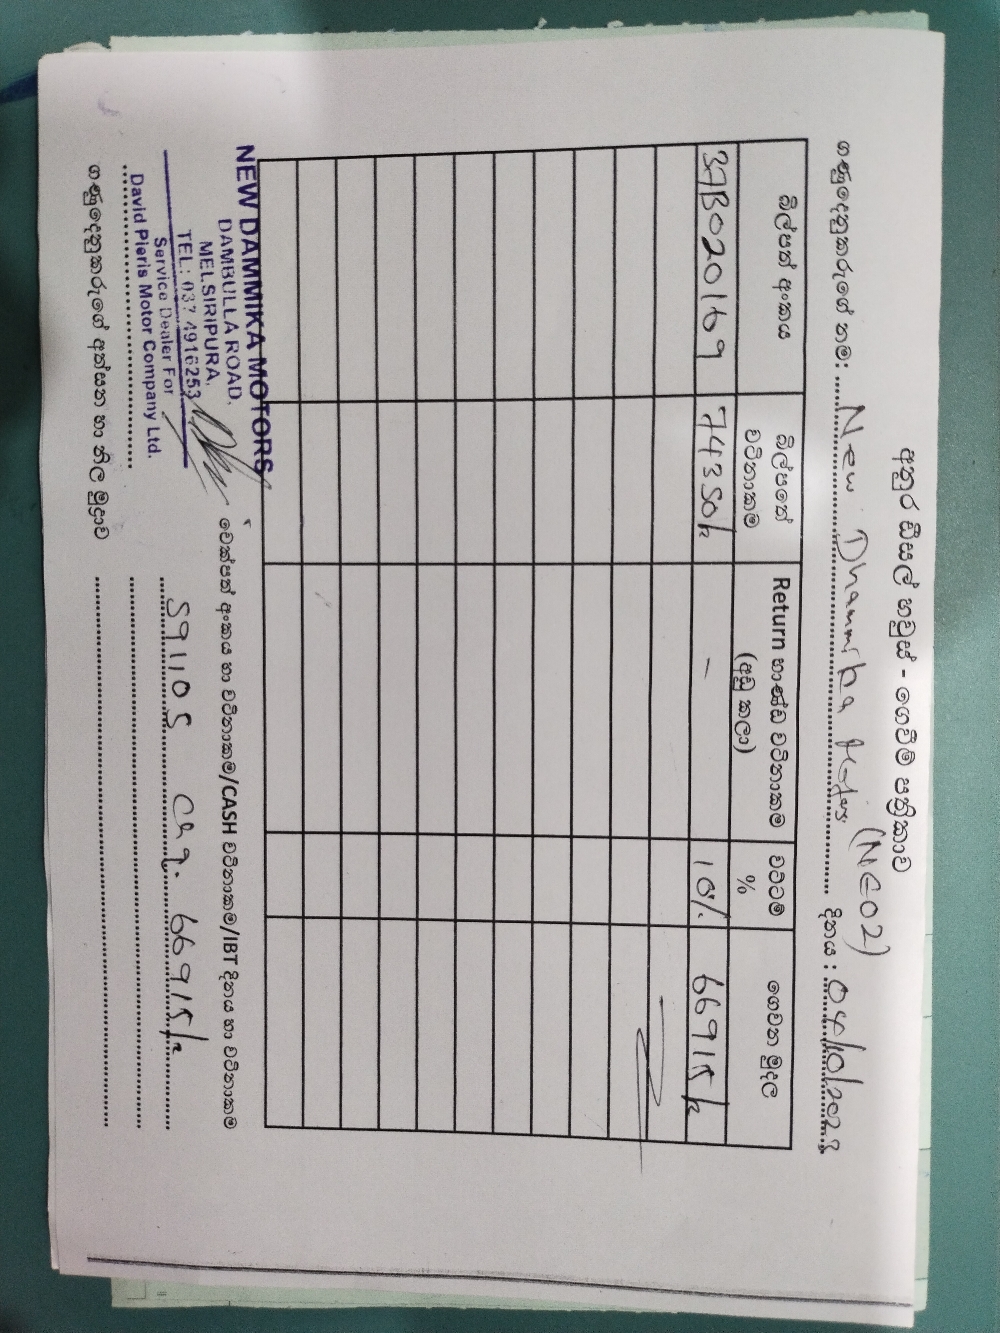 අනුර ඩීසල් හවුස් - ගෙවීම් පත්‍රිකාව
ගණුදෙනුකරුගේ නම: New Dhammika Motors (NE02) දිනය: 04/10/2023
බිල්පත් අංකය බිල්පතේ වටිනාකම Return භාණ්ඩ වටිනාකම (අඩු කලා) වට්ටම් % ගෙවන මුදල
37B0201169 74350/= - 10% 66915/=
චෙක්පත් අංකය හා වටිනාකම/CASH වටිනාකම/IBT දිනය හා වටිනාකම
591105 Chq. 66915/=
NEW DAMMIKA MOTORS
DAMBULLA ROAD,
MELSIRIPURA.
TEL: 037 4916253
Service Dealer For
David Pieris Motor Company Ltd.
ගණුදෙනුකරුගේ අත්සන හා නිල මුද්‍රාව